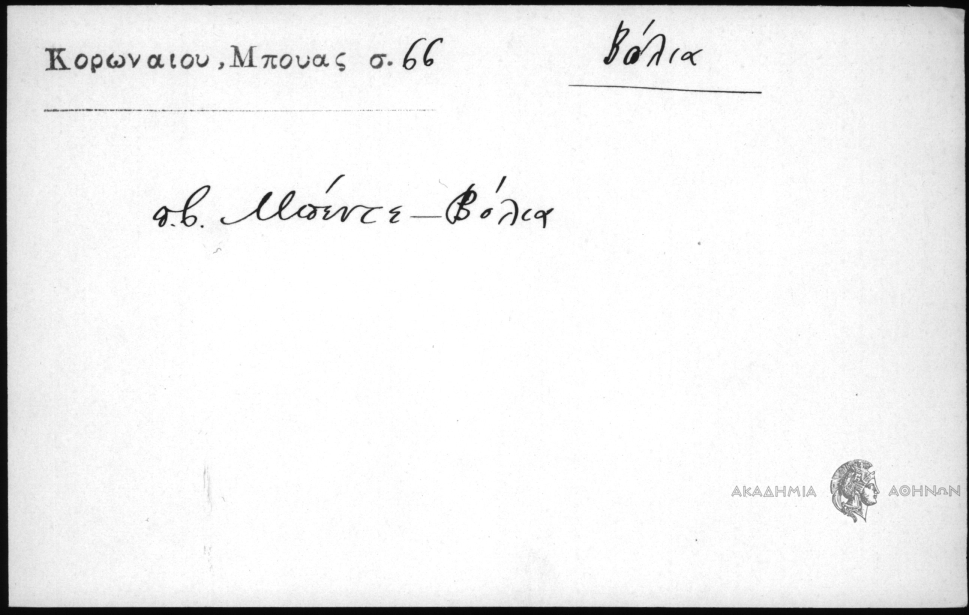 Κορωναιου, Μπουας σ. 66
Βόλια
π.β. Μπέντε – Βόλια
ΑΚΑΔΗΜΙΑ ΑΘΗΝΩΝ